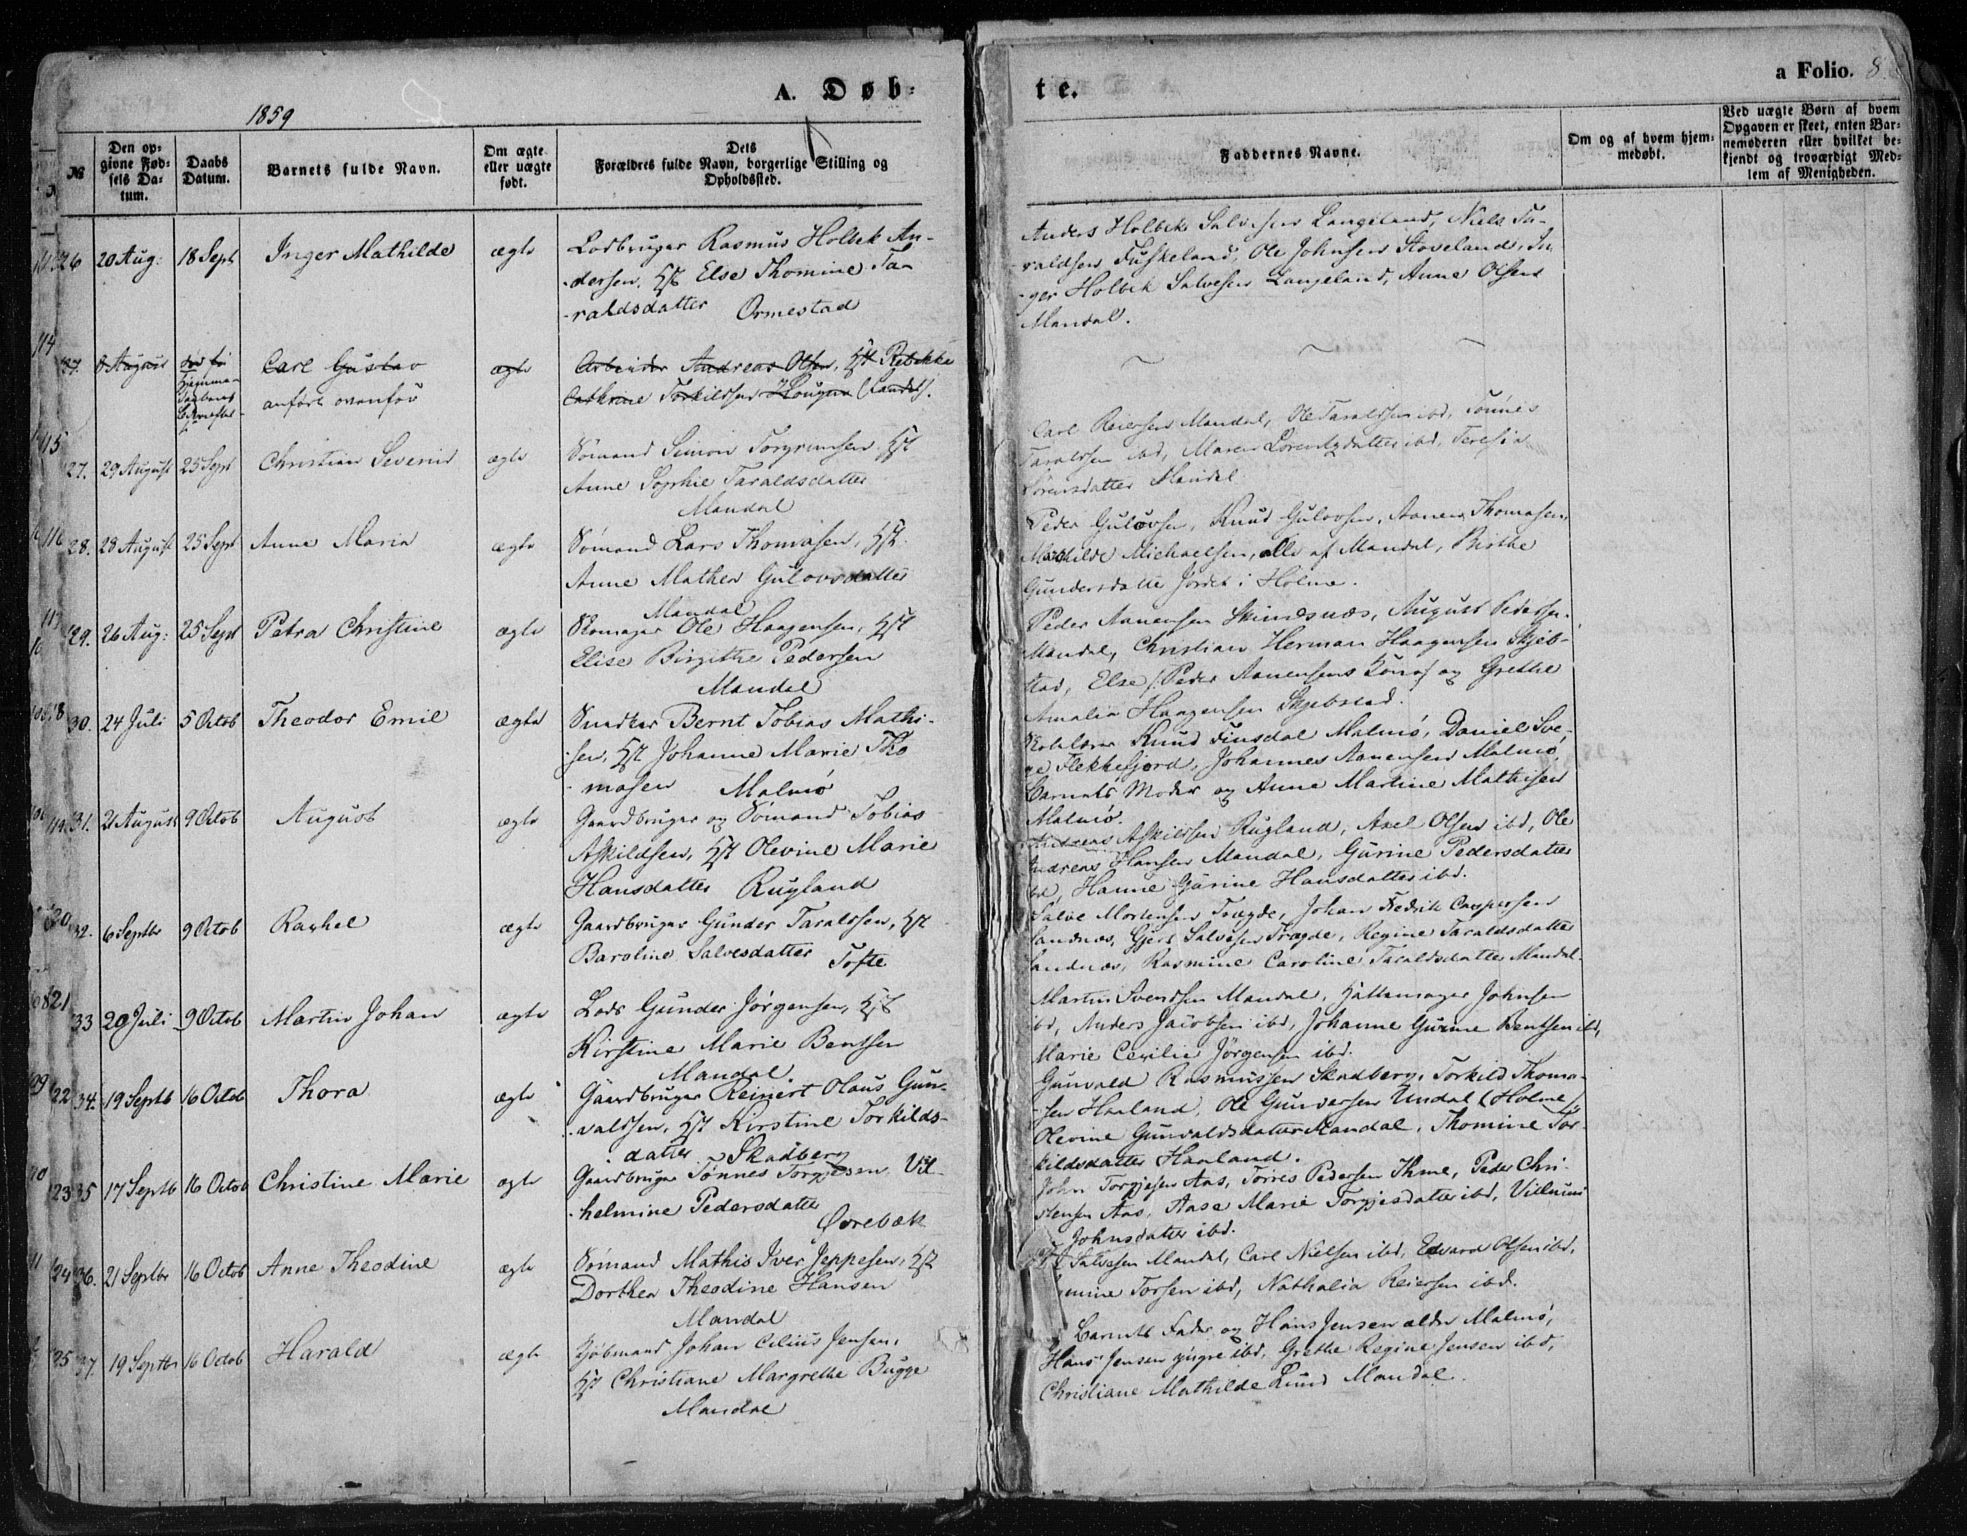 1859
A. Døb-
te.
a Folio. 8
№
Den op-
givne Fød-
sels Da-
tum.
Daabs
Datum.
Barnets fulde Navn.
Om ægte
eller uægte
født.
Dets
Forældres fulde Navn, borgerlige Stilling og
Opholdssted.
Faddernes Navne.
Om og af hvem hjem-
medøbt.
Ved uægte Børn af hvem
Opgaven er skeet, enten Bar-
nemoderen eller hvilket be-
kjendt og troværdigt Med-
lem af Menigheden.
26 20 Aug: 18 Sept Inger Mathilde ægte Lodbruger Rasmus Holbek An-
dersen, Hst Else Thomine Ta-
raldsdatter Ormestad
Anders Holbek Salvesen Langeland, Niels Ta-
raldsen Fuskeland, Ole Johnsen Stoveland, In-
ger Holbek Salvesen Langeland, Anne Olsen
Mandal.
114
27. 8 August Carl Gustav ægte Arbeider Andreas Olsen, Hst Rebekka
anført ovenfor Cathrine Torkildsen Hougen (Landet).
115
27. 29 August 25 Sept Christian Severin ægte Sømand Simon Torgrimsen, Hst
Anne Sophie Taraldsdatter
Mandal
Carl Reiersen Mandal, Ole Taraldsen ibd, Tønnes
Taraldsen ibd, Maren Lorentzdatter ibd, Teresia
Sörensdatter Mandal
116
28. 28 August 25 Sept Anne Maria ægte Sømand Lars Thomasen, Hst
Anne Mathea Gulovsdatter
Mandal
Peder Gulovsen, Knud Gulovsen, Aanen Thomasen,
Mathilde Michaelsen, alle af Mandal, Birthe
Gundersdatter Jordet i Holme.
117
29. 26 Aug: 25 Sept Petra Christine ægte Skomager Ole Haagensen, Hst
Elise Birgithe Pedersen
Mandal
Peder Aanensen Skinsnæs, August Pedersen
Mandal, Christian Herman Haagensen Skjeb-
stad, Else (Peder Aanensens Kone) og Grethe
Amalia Haagensen Skjebstad.
118
30. 24 Juli 5 Octob Theodor Emil ægte Snedker Bernt Tobias Mathi-
sen, Hst Johanne Marie Tho
masen Malmö
Skolelærer Knud Finsdal Malmö, Daniel Sve-
ge Flekkefjord, Johannes Aanensen Malmö,
Barnets Moder og Anne Martine Mathisen
Malmö.
119
31. 21 August 9 Octob August ægte Gaardbruger og Sømand Tobias
Askildsen, Hst Olevine Marie
Hansdatter Rugland
Andreas Askildsen Rugland, Axel Olsen ibd, Ole
Andreas Hansen Mandal, Gurine Pedersdatter
ibd, Hanne Gurine Hansdatter ibd.
120
32. 6 Septbr 9 Octob Rachel ægte Gaardbruger Gunder Taraldsen, Hst
Baroline Salvesdatter Tofte
Salve Mortensen Trægde, Johan Fredrik Caspersen
Sandnæs, Gjert Salvesen Trægde, Regine Taraldsdatter
Sandnæs, Rasmine Caroline Taraldsdatter Mandal.
121
33 20 Juli 9 Octob Martin Johan ægte Lods Gunder Jørgensen, Hst
Kirstine Marie Bentsen
Mandal.
Martin Svendsen Mandal, Hattemager Johnsen
ibd, Anders Jacobsen ibd, Johanne Gurine Bentsen ibd,
Marie Cecilie Jørgensen ibd.
122
34. 19 Septb 16 Octob Thora ægte Gaardbruger Reinert Olaus Gun-
valdsen, Hst Kirstine Torkilds-
datter Skadberg
Gunvald Rasmussen Skadberg, Torkild Thoma-
sen Haaland, Ole Gunversen Undal (Holme)
Olevine Gunvaldsdatter Mandal, Thomine Tor-
kildsdatter Haaland.
123
35 17 Septb 16 Octob Christine Marie ægte Gaardbruger Tønnes Torgjesen Vil-
helmine Pedersdatter
Ørebæk
John Torgjesen Aas, Torres Pedersen Ihme, Peder Chri-
stensen Aas, Aase Marie Torgjesdatter ibd,
Johnsdatter ibd.
124
36. 21 Septbr 16 Octob Anne Theodine ægte Sømand Mathis Iver Jeppesen, Hst
Dorthea Theodine Hansen
Mandal
Salvesen Mandal, Carl Nielsen ibd, Edvard Olsen ibd,
Torsen ibd, Nathalia Reiersen ibd.
125
37. 19 Septbr 16 Octob Harald ægte Kjøbmand Johan Cilius Jensen,
Hst Christiane Margrethe Bugge
Mandal
Barnets Fader og Hans Jensen ældre Malmö,
Hans Jensen yngre ibd, Grethe Regine Jensen ibd,
Christiane Mathilde Lund Mandal.